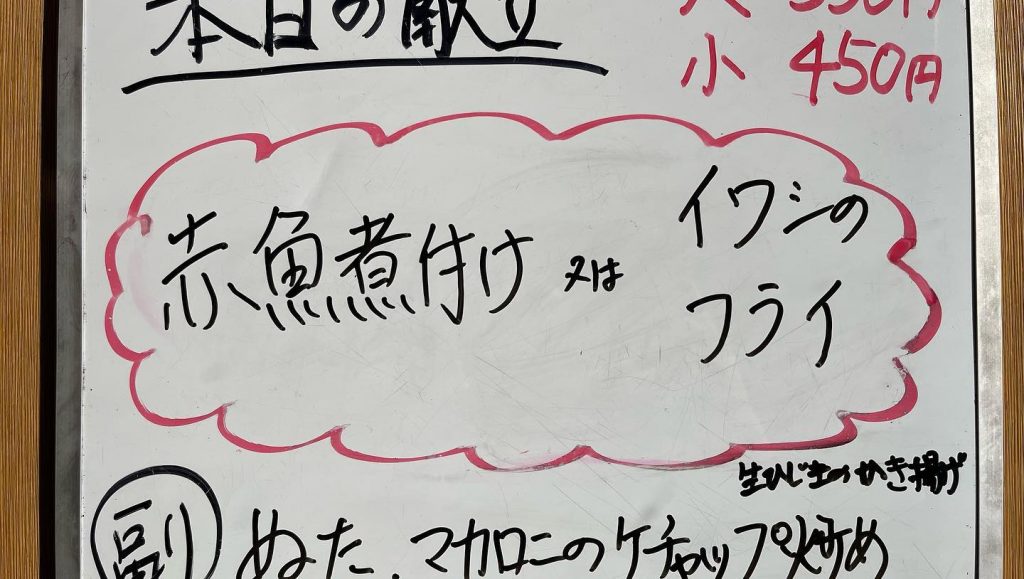 本日の献立
大 550円
小 450円
赤魚煮付け 又は イワシの
フライ
生ひじきのかき揚げ
副 ぬた、マカロニのケチャップ炒め